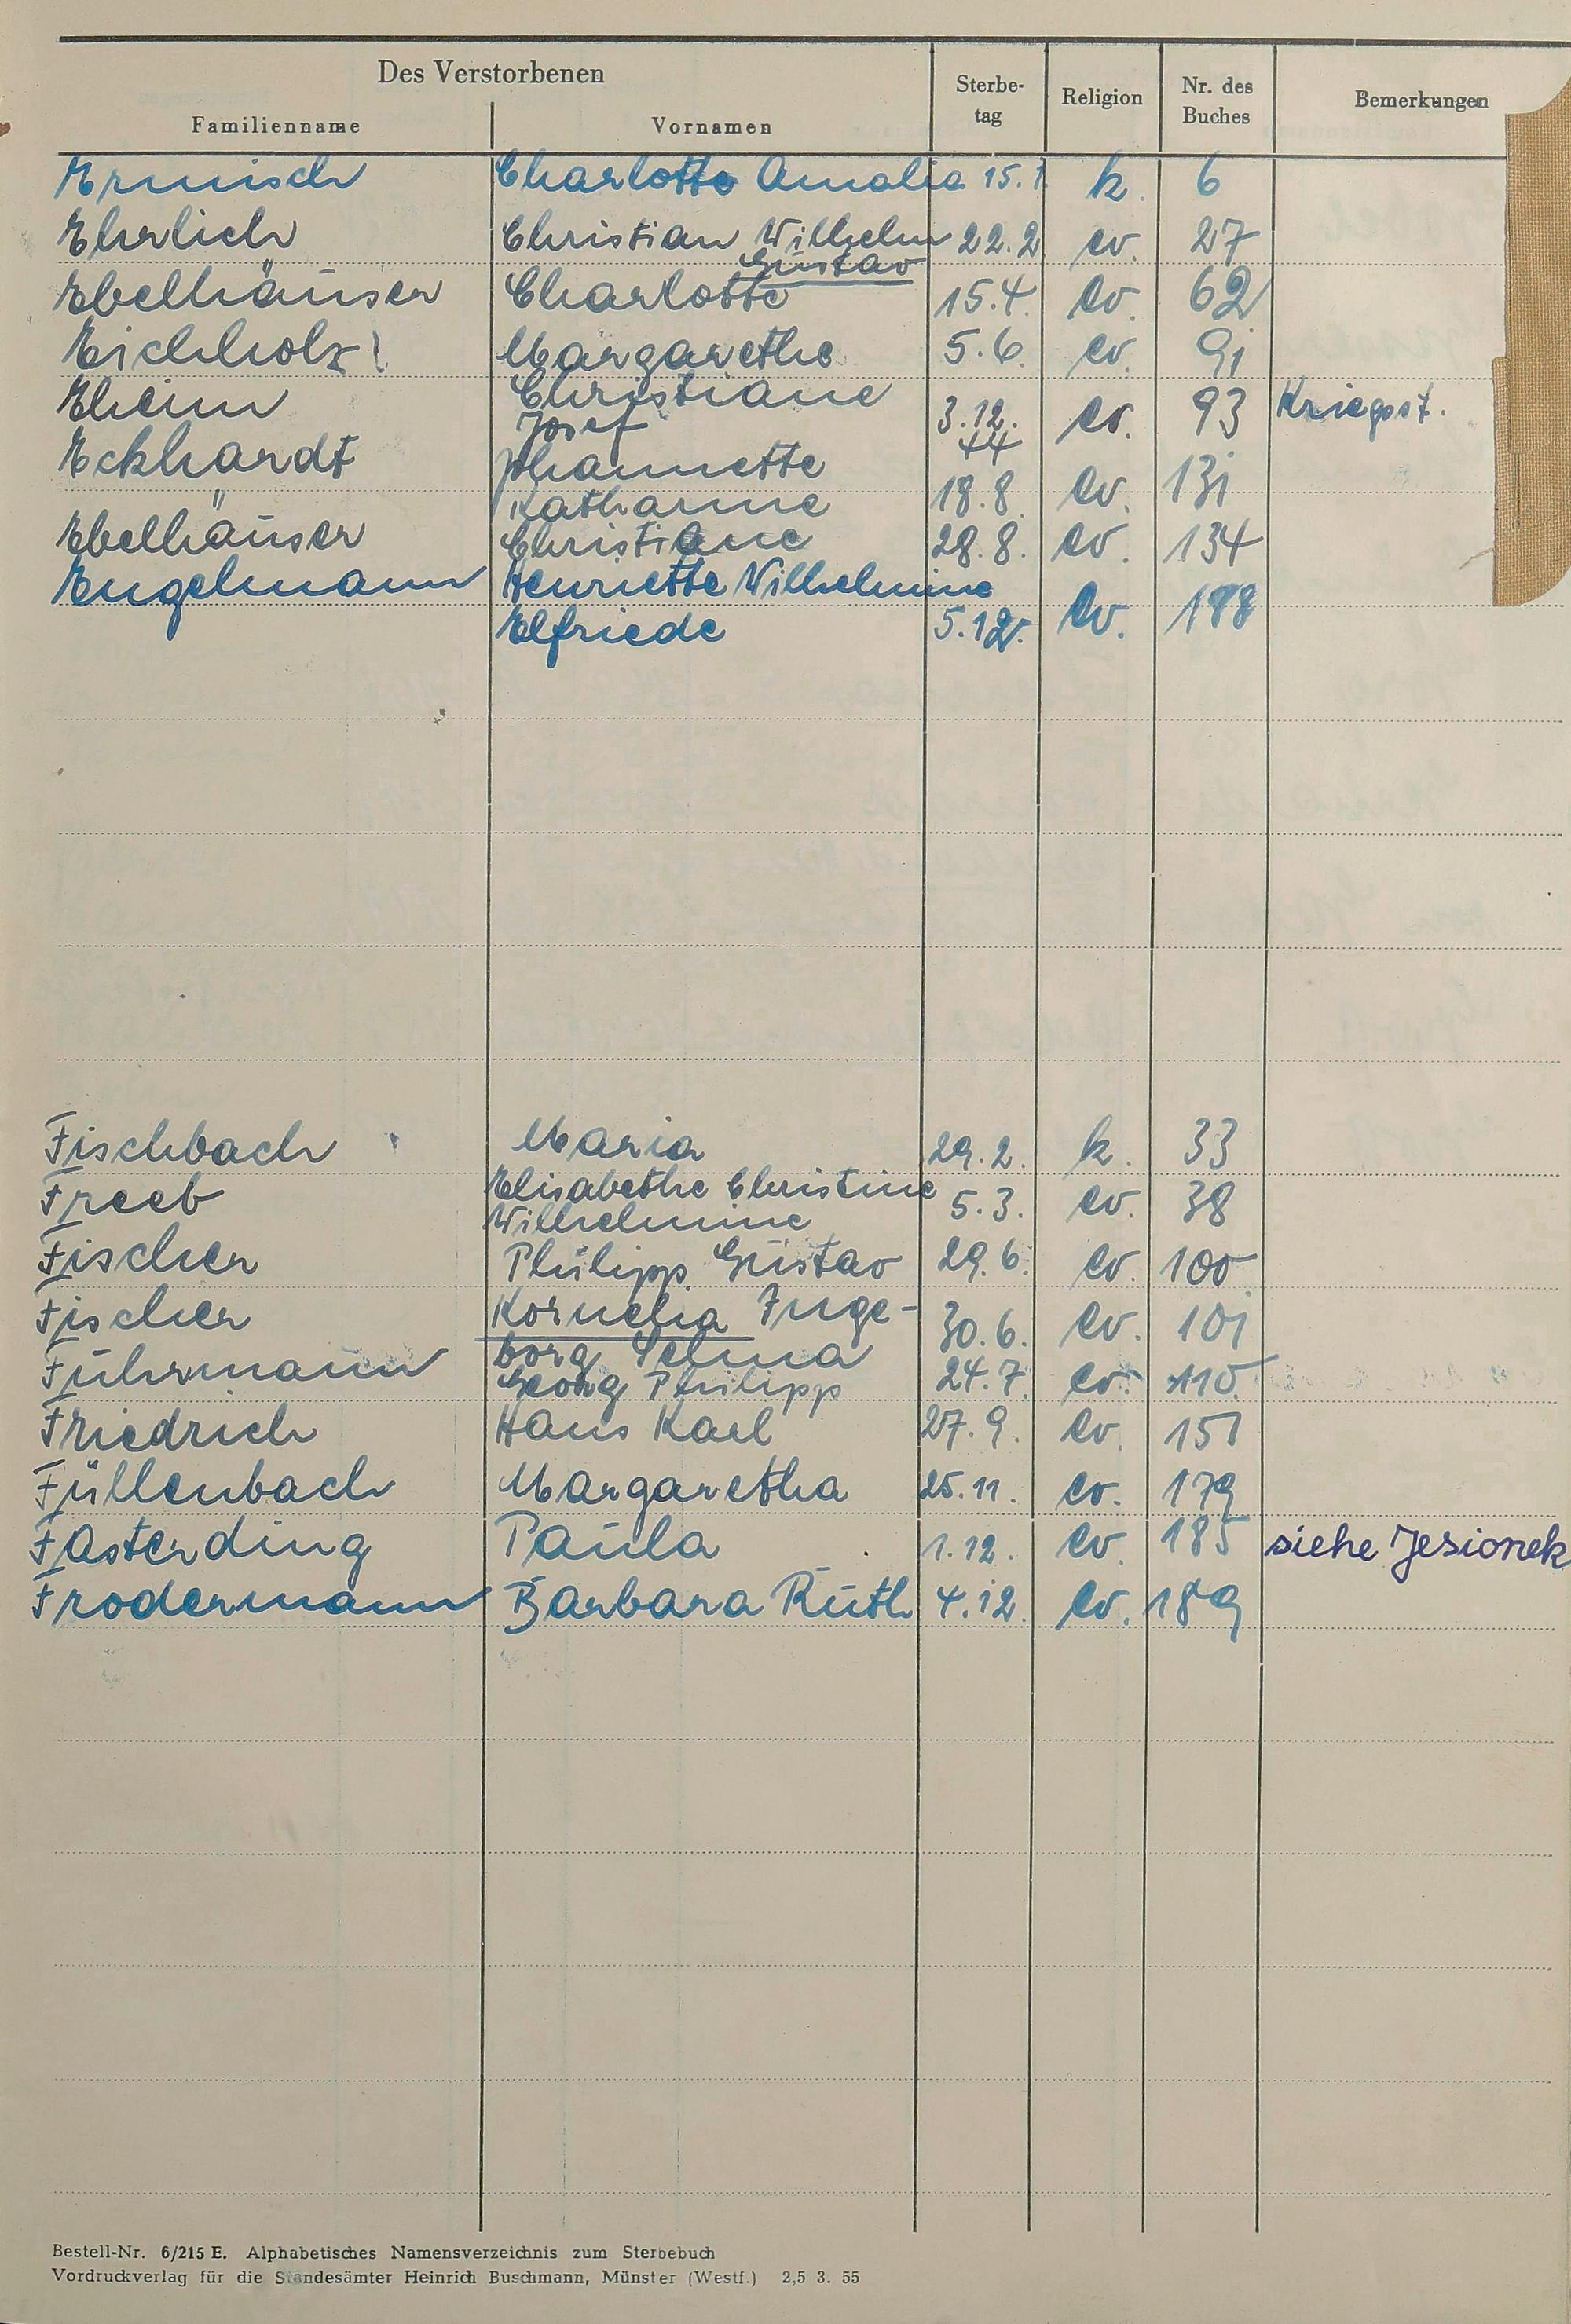 Des Verstorbenen
Familienname Vornamen Sterbe-tag Religion Nr. des Buches Bemerkungen
Ermisch Charlotte Amalia 15.1. k. 6
Ehrlich Christian Wilhelm 22.2. ev. 27
Gustav
Ebelhäuser Charlotte 15.4. ev. 62
Eichholz Margarethe 5.6. ev. 91
Eheim Christiane
Josef 3.12.44 ev. 93 Kriegsst.
Eckhardt Johannette
Katharine 18.8. ev. 131
Ebelhäuser Christiane 28.8. ev. 134
Engelmann Henriette Wilhelmine
Elfriede 5.12. ev. 188
Fischbach Maria 29.2. k. 33
Freeb Elisabethe Christine 5.3. ev. 38
Wilhelmine
Fischer Philipp Gustav 29.6. ev. 100
Fischer Kornelia Inge- 30.6. ev. 101
borg Selma
Fuhrmann Georg Philipp 24.7. ev. 110
Friedrich Hans Karl 27.9. ev. 151
Füllenbach Margaretha 25.11. ev. 179
Fasterding Paula 1.12. ev. 185 siehe Jesionek
Frodermann Barbara Ruth 4.12. ev. 189
Bestell-Nr. 6/215 E. Alphabetisches Namensverzeichnis zum Sterbebuch
Vordruckverlag für die Standesämter Heinrich Buschmann, Münster (Westf.) 2,5 3. 55